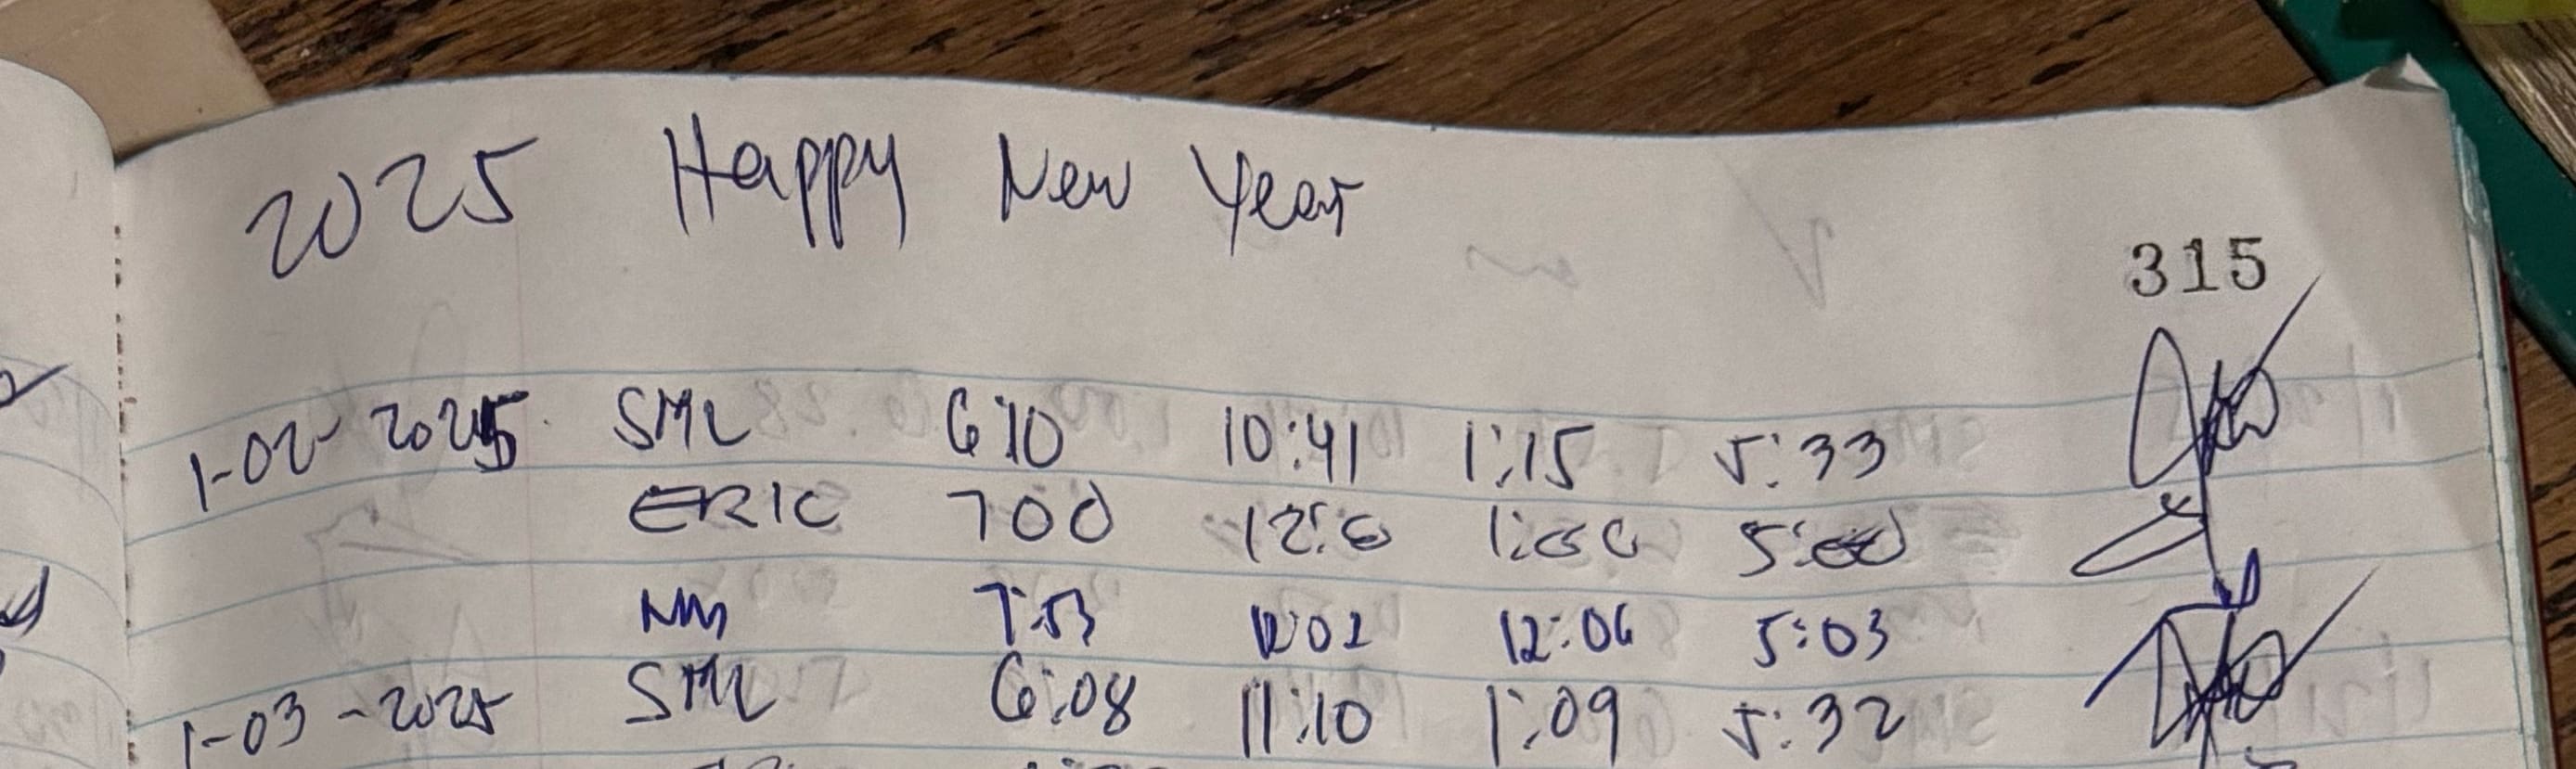 2025 Happy New Year
315
1-02-2025 SML 6:10 10:41 1:15 5:33
ERIC 700 12:0 1:00 5:00
NM 7:53 12:02 12:06 5:03
1-03-2025 SML 6:08 11:10 1:09 5:32